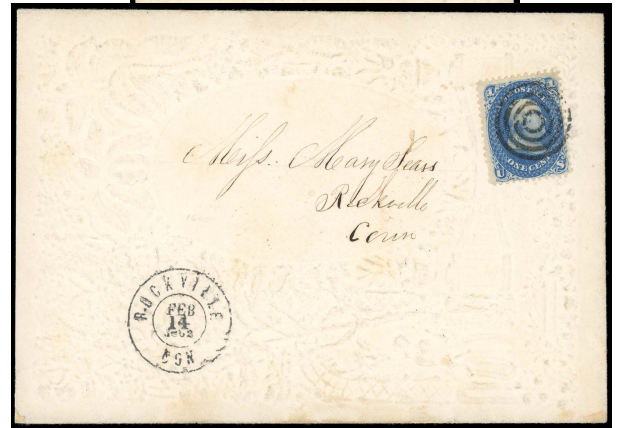 U.S. POSTAGE
ONE CENT
Miss. Mary Sears
Rockville
Conn
ROCKVILLE
FEB
14
1862
CON